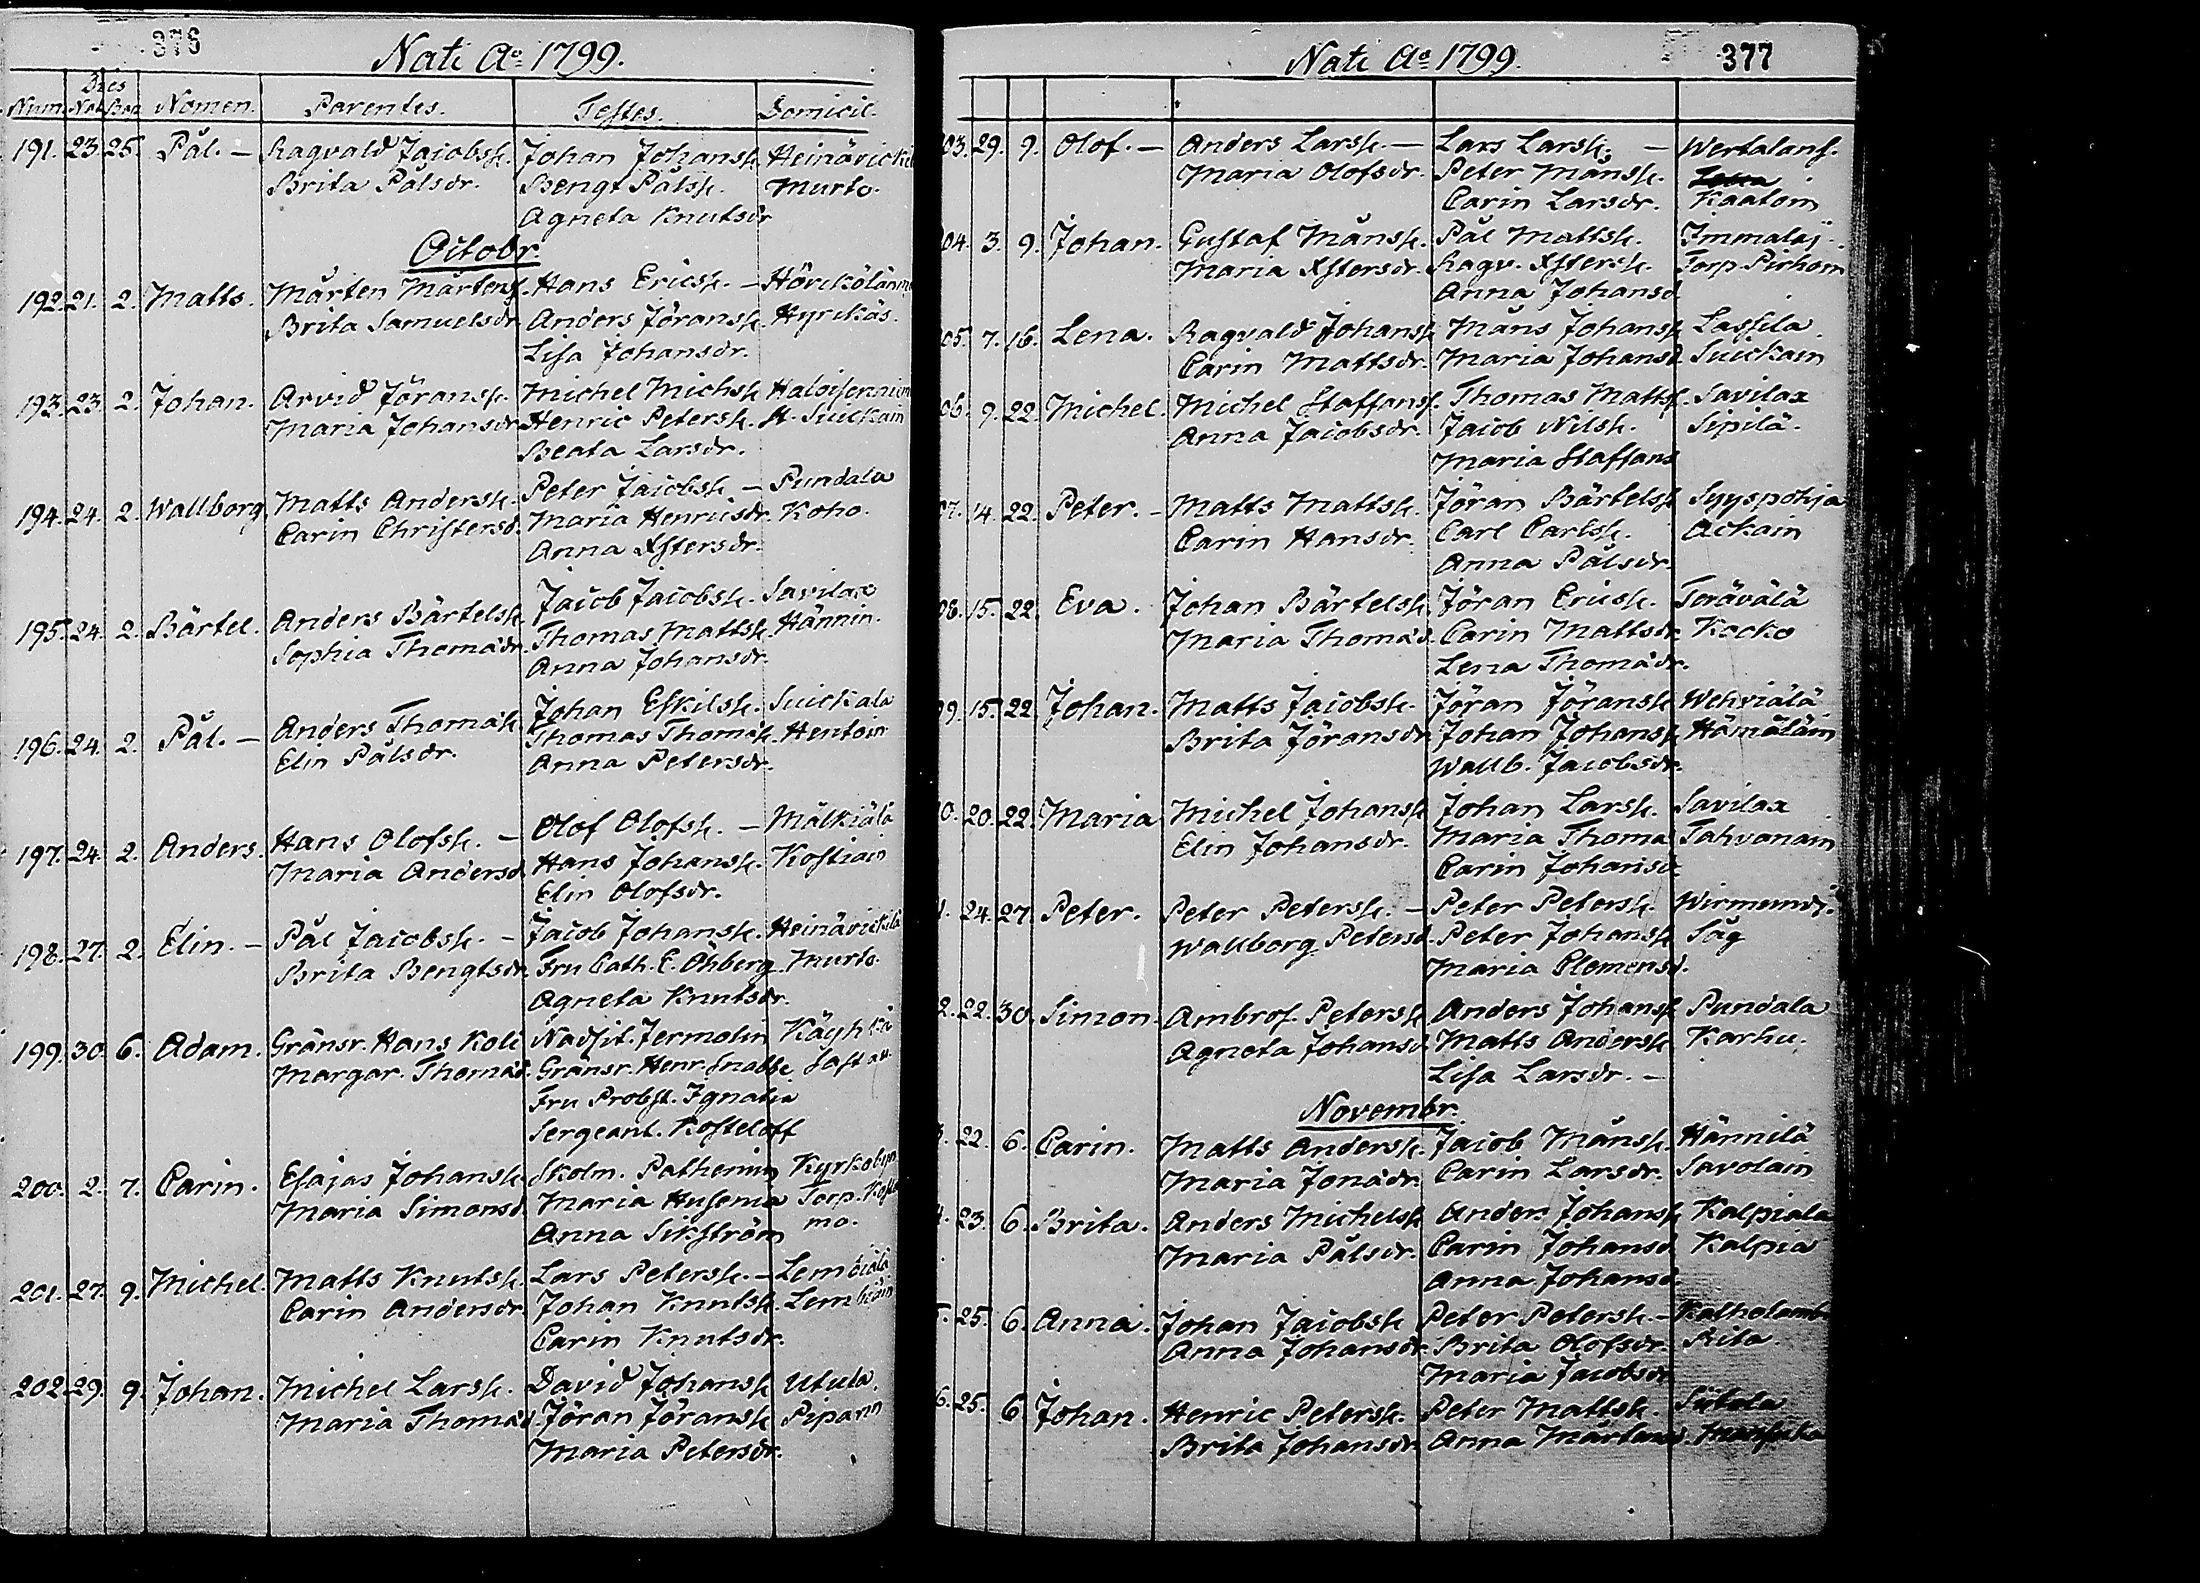 376
Nati Ao 1799.
Dies
Num Nat Bap Nomen. Parentes. Testes. Domicil.
191. 23. 25. Pål. – Ragvald Jacobss. Johan Johanss. Heinävickil
Brita Pålsdr. Bengt Pålss. Murto.
Agneta Knutsdr
Octobr.
192. 21. 2. Matts. Mårten Mårtens. Hans Ericss. –
Brita Samuelsdr. Anders Jöranss. Hyrckäs.
Lisa Johansdr.
193. 23. 2. Johan. Arvid Jöranss. Michel Michss.
Maria Johansdr. Henric Peterss. H. Suickain
Beata Larsdr.
194. 24. 2. Wallborg Matts Anderss. Peter Jacobss. – Pundala
Carin Christersd. Maria Henricsdr. Koho.
Anna Xstersdr.
195. 24. 2. Bärtel. Anders Bärtelss. Jacob Jacobss. Savilax
Sophia Thomädr. Thomas Mattss. Hännin.
Anna Johansdr.
196. 24. 2. Pål. – Anders Thomäss. Johan Eskilss. Suickala
Elin Pålsdr. Thomas Thomäss. Hentoin
Anna Petersdr.
197. 24. 2. Anders. Hans Olofss. – Olof Olofss. – Mälkiälä
Maria Andersd. Hans Johanss. Kostiain
Elin Olofsdr.
198. 27. 2. Elin. – Pål Jacobss. – Jacob Johanss. Heinävickilä
Brita Bengtsdr. Fru Cath. E. Öhberg. Murto.
Agneta Knutsdr.
199. 30. 6. Adam. Gränsr. Hans Koli Nadsit. Jermolin Käyhkä
Margar. Thomäd. Gränsr. Henr. Snabbe.
Fru Probst. Ignatia
Sergeant. Kosteloff
200. 2. 7. Carin. Esajas Johanss. Skolm. Pathenius Kyrkobyn
Maria Simonsd. Maria Husenia Torp.
Anna Sikström mo.
201. 27. 9. Michel. Matts Knutss. Lars Peterss. – Lemciälä
Carin Andersdr. Johan Knutss.
Carin Knutsdr.
202. 29. 9. Johan. Michel Larss. David Johanss Utula.
Maria Thomäd. Jöran Jöranss Pipann
Maria Petersdr.
377
Nati Ao 1799.
03. 29. 9. Olof. – Anders Larss. – Lars Larss. –
Maria Olofsdr. Peter Månss.
Carin Larsdr. Kaatoin
04. 3. 9. Johan. Gustaf Månss. Pål Mattss. Immalaj.
Maria Xstersdr. Ragv. Xsterss. Torp. Pirhoin
Anna Johansd
05. 7. 16. Lena. Ragvald Johanss Måns Johanss Lassila.
Carin Mattsdr. Maria Johansd Suickain
06. 9. 22. Michel. Michel Staffanss. Thomas Mattss. Savilax
Anna Jacobsdr. Jacob Nilss. Sipilä.
Maria Staffans
07. 14. 22. Peter. – Matts Mattss. Jöran Bärtelss Syyspohja
Carin Hansdr. Carl Carlss. Ackain
Anna Pålsdr.
08. 15. 22. Eva. Johan Bärtelss. Jöran Ericss. Terävälä
Maria Thomäd. Carin Mattsdr. Kocko
Lena Thomädr.
09. 15. 22. Johan. Matts Jacobss. Jöran Jöranss Wehviälä
Brita Jöransdr Johan Johanss. Hämäläin
Wallb. Jacobsdr.
0. 20. 22. Maria Michel Johanss Johan Larss. Savilax
Elin Johansdr. Maria Thoma Tahvanain
Carin Johansd.
1. 24. 27. Peter. Peter Peterss. – Peter Peterss.
Wallborg Petersd. Peter Johanss. Såg
Maria Clemensd.
2. 22. 30. Simon. Ambros. Peterss. Anders Johanss. Pundala
Agneta Johansd. Matts Anderss. Karhu.
Lisa Larsdr. –
Novembr.
3. 22. 6. Carin. Matts Anderss. Jacob Månss. Hännilä
Maria Jonädr. Carin Larsdr. Savolain
4. 23. 6. Brita. Anders Michelss. Anders Johanss. Kalpiala
Maria Pålsdr. Carin Johansd. Kalpia
Anna Johansd.
5. 25. 6. Anna. Johan Jacobss Peter Peterss. –
Anna Johansdr. Brita Olofsdr. Rita.
Maria Jacobsdr
6. 25. 6. Johan. Henric Peterss. Peter Mattss. Siitola
Brita Johansdr. Anna Mårtensd.